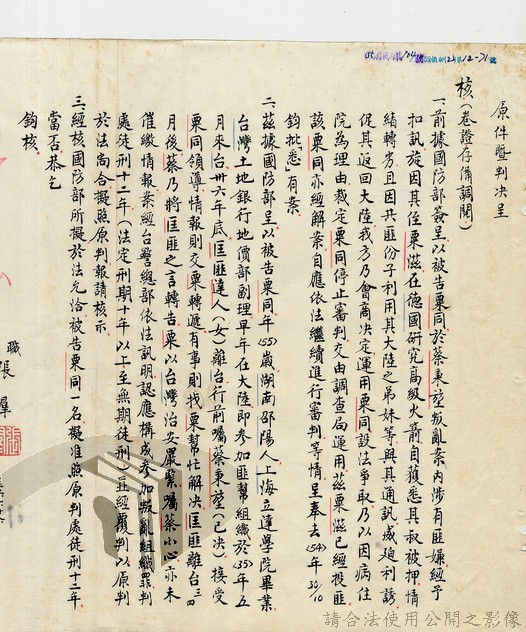 原件暨判決呈
核（卷證存備調閱）
一、前據國防部簽呈以被告粟同於蔡秉堃叛亂案內涉有匪嫌經予
扣訊旋因其侄粟滋在德國研究高級火箭自獲悉其叔被押情
緒轉劣且因共匪份子利用其大陸之弟妹等與其通訊威廹利誘
促其返回大陸我方乃會商決定運用粟同設法爭取乃以因病住
院為理由裁定粟同停止審判交由調查局運用茲粟滋已經投匪
該粟同亦經解案自應依法繼續進行審判等情呈奉去(54)年30/10
鈞批悉」有案
二、茲據國防部呈以被告粟同年(55)歲湖南邵陽人上海立達學院畢業
台灣土地銀行地價部副理早年在大陸即參加匪幫組織於(35)年五
月來台卅六年底匡匪達人(女)離台行前囑蔡秉堃(已決)接受
粟同領導情報則交粟轉遞有事則找粟幫忙解決匡匪離台三四
月後蔡乃將匡匪之言轉告粟以台灣治安嚴緊囑蔡小心亦未
催繳情報案經台警總部依法訊明認應構成參加叛亂組織罪判
處徒刑十二年(法定刑期十年以上至無期徒刑)並經覆判以原判
於法尚合擬照原判報請核示
三、經核國防部所擬於法允洽被告粟同一名擬准照原判處徒刑十二年
當否恭乞
鈞核
職 張羣
請合法使用公開之影像